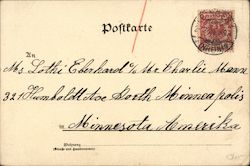 Postkarte
An
Ms. Lothi Eberhard c/o Mr. Charlie Mann
321 Humboldt Ave North Minneapolis
in Minnesota Amerika
Wohnung
(Straße und Hausnummer)